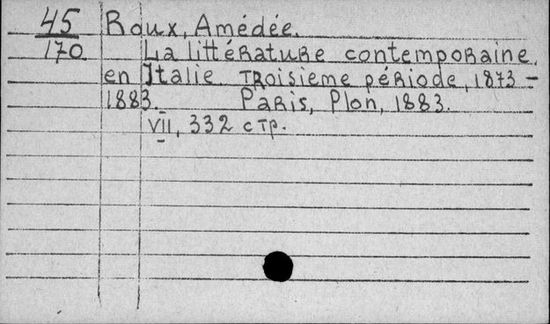 45 Roux, Amédée.
170 La littérature contemporaine
en Italie Troisieme période, 1873-
1883. Paris, Plon, 1883.
VII, 332 стр.